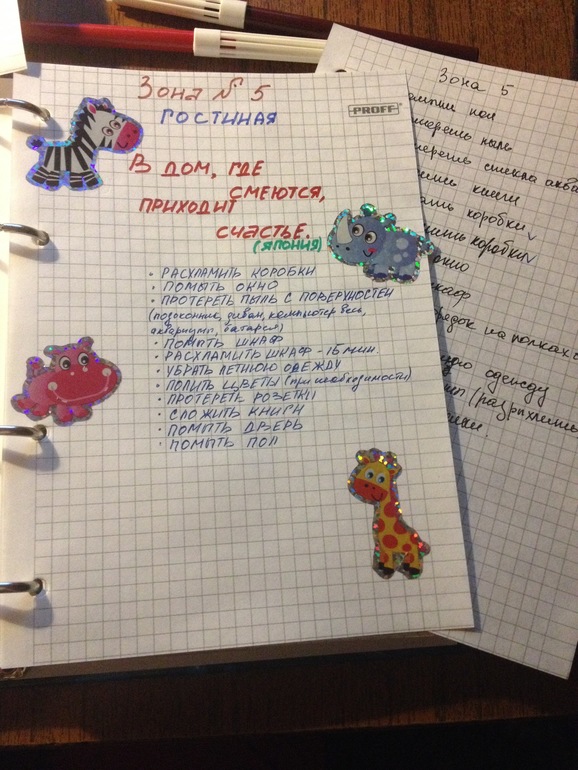 Зона № 5
PROFF
ГОСТИНАЯ
В ДОМ, ГДЕ
СМЕЮТСЯ,
ПРИХОДИТ
СЧАСТЬЕ.
(ЯПОНИЯ)
• РАСХЛАМИТЬ КОРОБКИ
• ПОМЫТЬ ОКНО
• ПРОТЕРЕТЬ ПЫЛЬ С ПОВЕРХНОСТЕЙ
(подоконник, диван, компьютер весь,
аквариум, батарея)
• ПОМЫТЬ ШКАФ
• РАСХЛАМИТЬ ШКАФ - 15 МИН.
• УБРАТЬ ЛЕТНЮЮ ОДЕЖДУ
• ПОЛИТЬ ЦВЕТЫ (при необходимости)
• ПРОТЕРЕТЬ РОЗЕТКИ
• СЛОЖИТЬ КНИГИ
• ПОМЫТЬ ДВЕРЬ
• ПОМЫТЬ ПОЛ
Зона 5
пол
пыль
стекла
книги
коробки
коробки
на полках
одежду